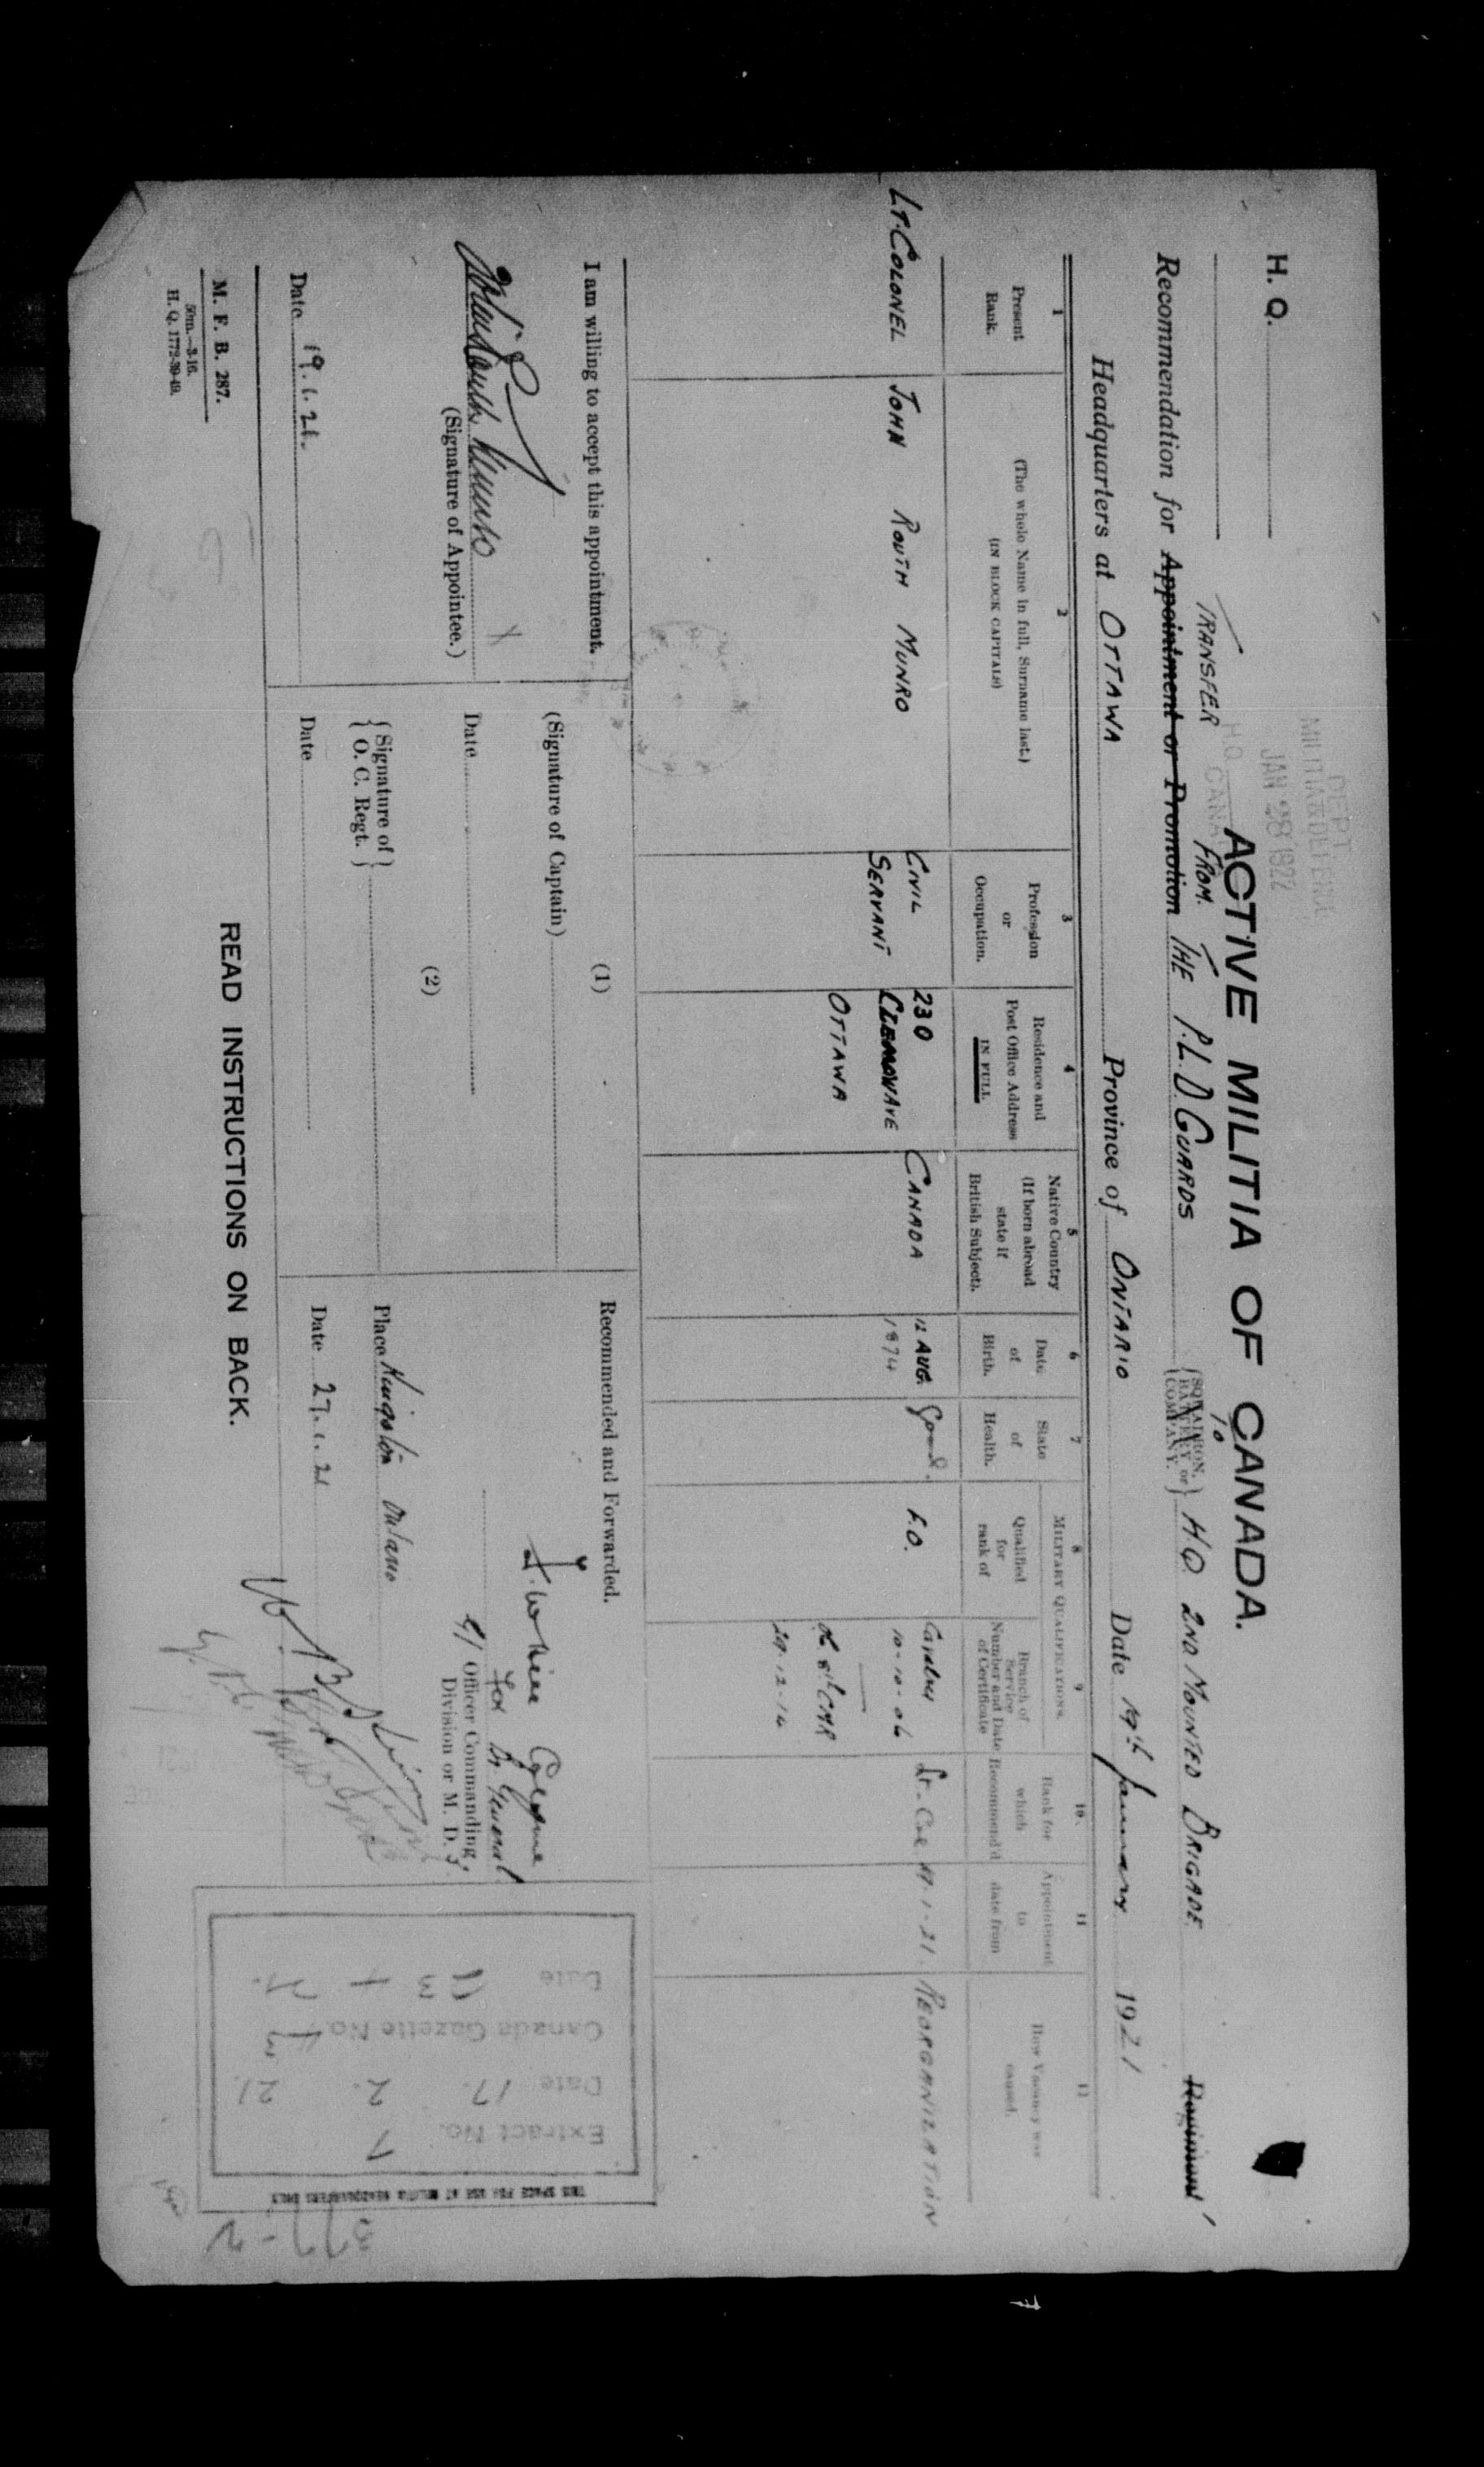 H. Q.
DEPT
MILITIA & DEFENCE
JAN 28 1922
H.Q. CANA
ACTIVE MILITIA OF CANADA.
TRANSFER FROM. TO
Recommendation for Appointment or Promotion THE P.L.D. GUARDS {SQUADRON, BATTERY or COMPANY.} H.Q. 2ND MOUNTED BRIGADE Regiment
Headquarters at OTTAWA Province of ONTARIO Date 19th January 1921
1
Present
Rank.
2
(The whole Name in full, Surname last.)
(IN BLOCK CAPITALS)
3
Profession
or
Occupation.
4
Residence and
Post Office Address
IN FULL
5
Native Country
(If born abroad
state if
British Subject).
6
Date
of
Birth.
7
State
of
Health.
MILITARY QUALIFICATIONS.
8
Qualified
for
rank of
9
Branch of
Service
Number and Date
of Certificate
10
Rank for
which
Recommend'd
11
Appointment
to
date from
12
How Vacancy was
caused.
LT. COLONEL
JOHN ROUTH MUNRO
CIVIL
SERVANT
230
OTTAWA
CANADA
12 AUG.
1874
Good.
F.O.
Cavalry
10-10-06
8th CMR
29-12-14
Lt. Col.
19-1-21.
REORGANIZATION
I am willing to accept this appointment.
John Routh Munro
(Signature of Appointee.)
Date 19.1.21.
(1)
(Signature of Captain)
Date
(2)
{Signature of
O. C. Regt.}
Date
Recommended and Forwarded.
for Br. General
Officer Commanding,
Division or M. D. 3
Place Kingston Ontario
Date 27.1.21
THIS SPACE FOR USE AT MILITIA HEADQUARTERS ONLY
Extract No.
Date 17. 2. 21.
Canada Gazette No.
Date
M. F. B. 287.
50m.—3-16.
H. Q. 1772-39-49.
READ INSTRUCTIONS ON BACK.